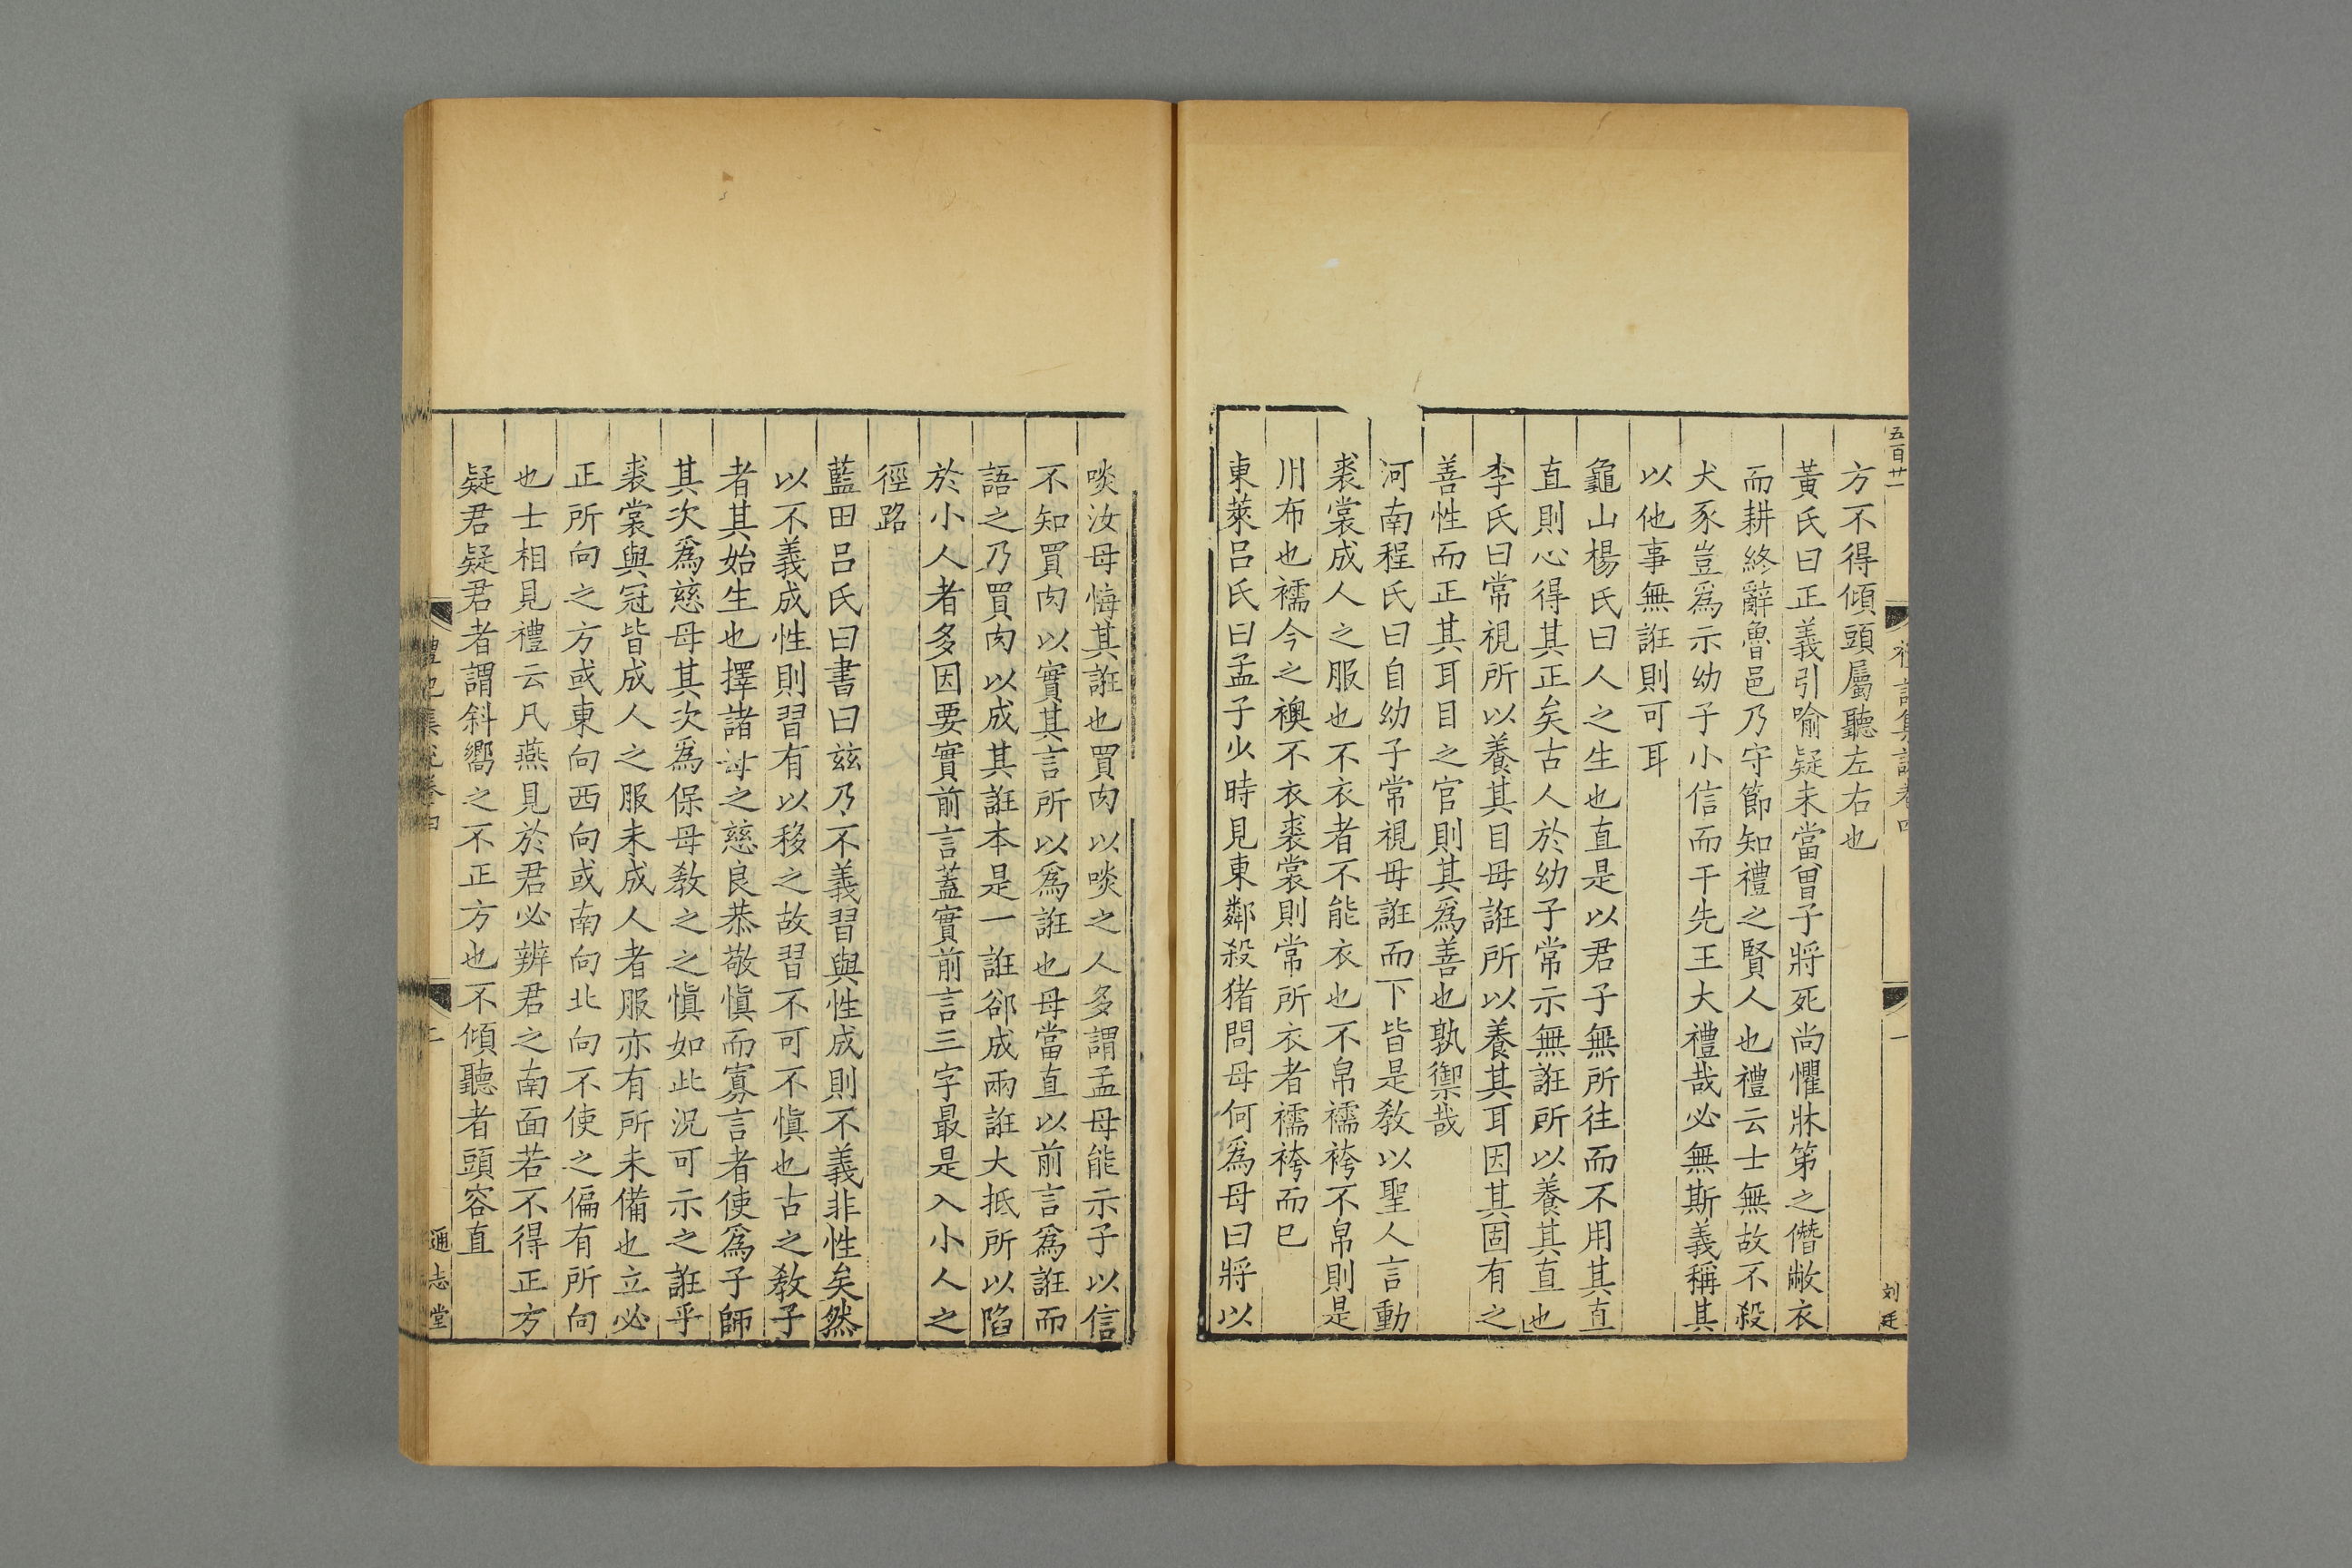 五百廿一
禮記集說卷四
一
刘廷
方不得傾頭屬聽左右也
黃氏曰正義引喻疑未當曾子將死尚懼牀笫之僭敝衣
而耕終辭魯邑乃守節知禮之賢人也禮云士無故不殺
犬豕豈爲示幼子小信而干先王大禮哉必無斯義稱其
以他事無誑則可耳
龜山楊氏曰人之生也直是以君子無所往而不用其直
直則心得其正矣古人於幼子常示無誑所以養其直也
李氏曰常視所以養其目毋誑所以養其耳因其固有之
善性而正其耳目之官則其爲善也孰禦哉
河南程氏曰自幼子常視毋誑而下皆是教以聖人言動
裘裳成人之服也不衣者不能衣也不帛襦袴不帛則是
川布也襦今之襖不衣裘裳則常所衣者襦袴而已
東萊呂氏曰孟子少時見東鄰殺猪問母何爲母曰將以
啖汝母悔其誑也買肉以啖之人多謂孟母能示子以信
不知買肉以實其言所以爲誑也母當直以前言爲誑而
語之乃買肉以成其誑本是一誑郤成兩誑大抵所以陷
於小人者多因要實前言蓋實前言三字最是入小人之
徑路
藍田呂氏曰書曰兹乃不義習與性成則不義非性矣然
以不義成性則習有以移之故習不可不慎也古之教子
者其始生也擇諸母之慈良恭敬慎而寡言者使爲子師
其次爲慈母其次爲保母教之之慎如此況可示之誑乎
裘裳與冠皆成人之服未成人者服亦有所未備也立必
正所向之方或東向西向或南向北向不使之偏有所向
也士相見禮云凡燕見於君必辨君之南面若不得正方
疑君疑君者謂斜嚮之不正方也不傾聽者頭容直
禮記集說卷四
二
通志堂